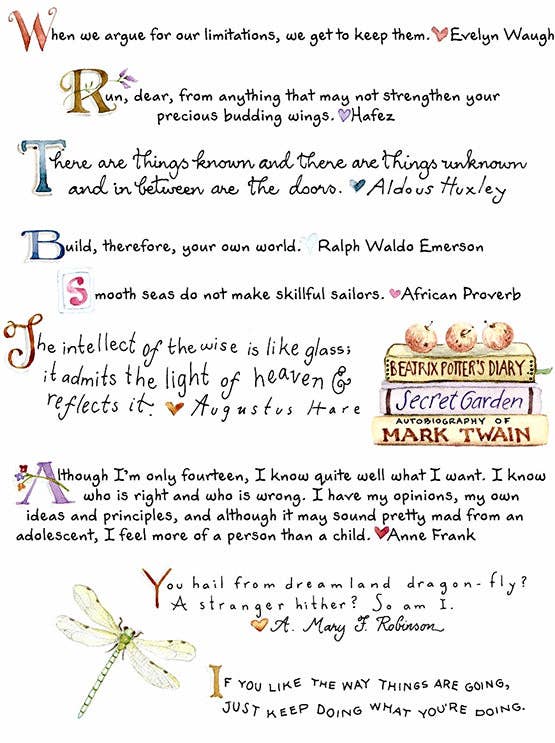 When we argue for our limitations, we get to keep them. Evelyn Waugh
Run, dear, from anything that may not strengthen your
precious budding wings. Hafez
There are things known and there are things unknown
and in between are the doors. Aldous Huxley
Build, therefore, your own world. Ralph Waldo Emerson
Smooth seas do not make skillful sailors. African Proverb
The intellect of the wise is like glass;
it admits the light of heaven &
reflects it. Augustus Hare
BEATRIX POTTER'S DIARY
Secret Garden
AUTOBIOGRAPHY OF
MARK TWAIN
Although I'm only fourteen, I know quite well what I want. I know
who is right and who is wrong. I have my opinions, my own
ideas and principles, and although it may sound pretty mad from an
adolescent, I feel more of a person than a child. Anne Frank
You hail from dream land dragon-fly?
A stranger hither? So am I.
A. Mary F. Robinson
IF YOU LIKE THE WAY THINGS ARE GOING,
JUST KEEP DOING WHAT YOU'RE DOING.